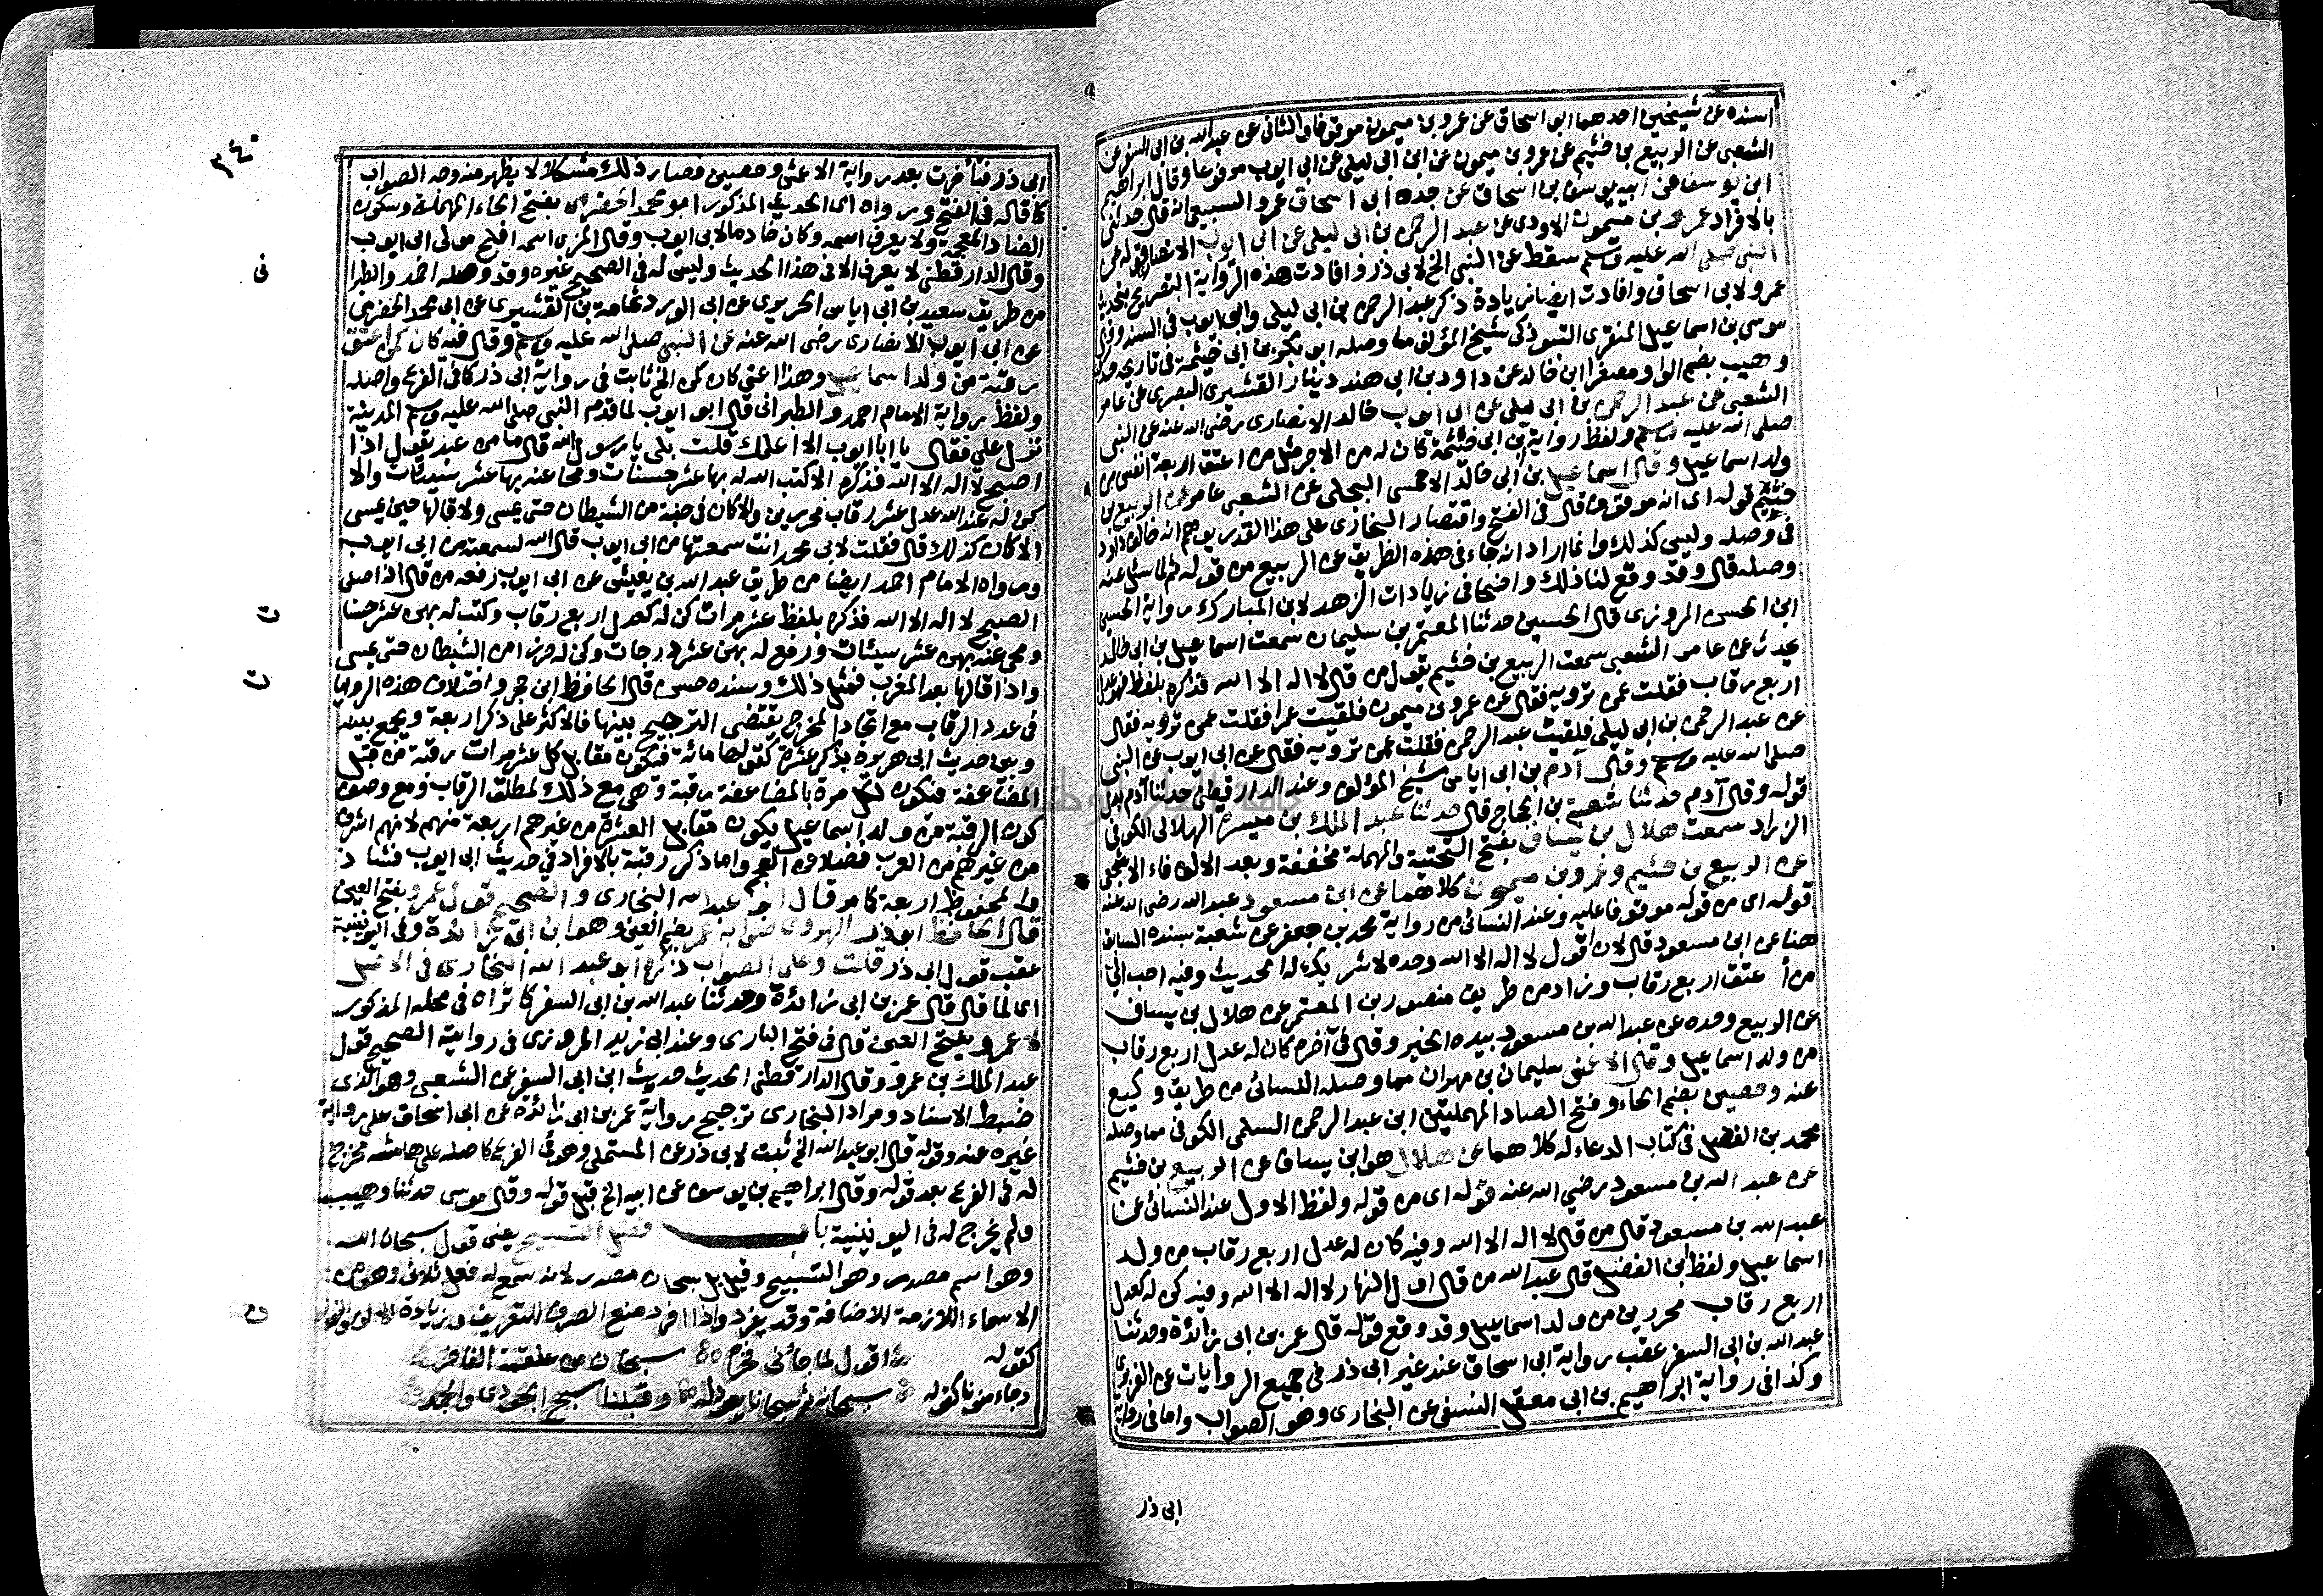 اسنده عن شيخين احدهما ابو اسحاق عن عمرو بن ميمون موقوفا والثانى عن عبد الله بن ابى السفر عن
الشعبى عن الربيع بن خثيم عن عمرو بن ميمون عن ابن ابى ليلى عن ابى ايوب مرفوعا وقال ابراهيم
ابن يوسف عن ابيه يوسف بن اسحاق عن جده ابى اسحاق عمرو السبيعى انه قال حدثنى
بالافراد عمرو بن ميمون الاودى عن عبد الرحمن بن ابى ليلى عن ابى ايوب الانصارى قوله عن
النبى صلى الله عليه وسلم سقط عن النبى الخ لابى ذر وافادت هذه الرواية التصريح بتحديث
عمرو لابى اسحاق وافادت ايضا زيادة ذكر عبد الرحمن بن ابى ليلى وابى ايوب فى السند وقال
موسى بن اسماعيل المنقرى التبوذكى شيخ المؤلف مما وصله ابو بكر بن ابى خيثمة فى تاريخه
وهيب بضم الواو مصغرا ابن خالد عن داود بن ابى هند دينار القشيرى البصرى عن عامر
الشعبى عن عبد الرحمن بن ابى ليلى عن ابى ايوب خالد الانصارى رضى الله عنه عن النبى
صلى الله عليه وسلم ولفظ رواية بن ابى خيثمة كان له من الاجر مثل من اعتق اربعة انفس من
ولد اسماعيل وقال اسماعيل بن ابى خالد الاحمسى البجلى عن الشعبى عامر عن الربيع بن
خثيم قوله اى انه موقوف قال فى الفتح واقتصار البخارى على هذا القدر يوهم انه خالف داود
فى وصله وليس كذلك وانما اراد انه جاء فى هذه الطريق عن الربيع من قوله ثم لما سئل عنه
وصله قال وقد وقع لنا ذلك واضحا فى زيادات الزهد لابن المبارك رواية الحسين
ابن الحسن المروزى قال الحسين حدثنا المعتمر بن سليمان سمعت اسماعيل بن ابى خالد
يحدث عن عامر الشعبى سمعت الربيع بن خثيم يقول من قال لا اله الا الله فذكره بلفظ فهو عدل
اربع رقاب فقلت عمن ترويه فقال عن عمرو بن ميمون فلقيت عمرا فقلت عمن ترويه فقال
عن عبد الرحمن بن ابى ليلى فلقيت عبد الرحمن فقلت عمن ترويه فقال عن ابى ايوب عن النبى
صلى الله عليه وسلم وقال آدم بن ابى اياس شيخ المؤلف وعند الدارقطنى حدثنا آدم بدل
قوله وقال آدم حدثنا شعبة بن الحجاج قال حدثنا عبد الملك بن ميسرة الهلالى الكوفى
الزراد سمعت هلال بن يساف بفتح التحتية والمهملة مخففة وبعد الالف فاء الاشجعى
عن الربيع بن خثيم وعمرو بن ميمون كلاهما عن ابن مسعود عبد الله رضى الله عنه
قوله اى من قوله موقوفا عليه وعند النسائى من رواية محمد بن جعفر عن شعبة بسنده السابق
هنا عن ابن مسعود قال لان اقول لا اله الا الله وحده لا شريك له الحديث وفيه احب الى
من أ عتق اربع رقاب وزاد من طريق منصور بن المعتمر عن هلال بن يساف
عن الربيع وحده عن عبد الله بن مسعود بيده الخير وقال فى آخره كان له عدل اربع رقاب
من ولد اسماعيل وقال الاعمش سليمان بن مهران مما وصله النسائى من طريق وكيع
عنه وحصين بضم الحاء وفتح الصاد المهملتين ابن عبد الرحمن السلمى الكوفى مما وصله
محمد بن الفضيل فى كتاب الدعاء له كلاهما عن هلال هو ابن يساف عن الربيع بن خثيم
عن عبد الله بن مسعود رضي الله عنه قوله اى من قوله ولفظ الاول عند النسائى عن
عبد الله بن مسعود قال من قال لا اله الا الله وفيه كان له عدل اربع رقاب من ولد
اسماعيل ولفظ ابن الفضيل قال عبد الله من قال اول النهار لا اله الا الله وفيه كن له كعدل
اربع رقاب محررين من ولد اسماعيل وقد وقع قوله قال عمر بن ابى زائدة وحدثنا
عبد الله بن ابى السفر عقب رواية ابى اسحاق عند غير ابى ذر فى جميع الروايات عن الفربرى
وكذا فى رواية ابراهيم بن ابى معقل النسفى عن البخارى وهو الصواب واما فى رواية
ابى ذر
٣٤٠
ابى ذر فتأخرت بعد رواية الاعمش وحصين فصار ذلك مشكلا لا يظهر منه وجه الصواب
كما قاله فى الفتح ورواه اى الحديث المذكور ابو محمد الحضرمى بفتح الحاء المهملة وسكون
الضاد المعجمة ولا يعرف اسمه وكان خادما لابى ايوب وقال المزى اسمه افلح مولى ابى ايوب
وقال الدارقطنى لا يعرف الا فى هذا الحديث وليس له فى الصحيح غيره وقد وصله احمد والطبرا
من طريق سعيد بن ابى اياس الجريرى عن ابى الورد ثمامة بن القشيرى عن ابى محمد الحضرمى
عن ابى ايوب الانصارى رضى الله عنه عن النبى صلى الله عليه وسلم وقال فيه كان كمن اعتق
رقبة من ولد اسماعيل وهذا اعنى كان كمن الخ ثابت فى رواية ابى ذر كما فى الفرع واصله
ولفظ رواية الامام احمد والطبرانى قال ابو ايوب لما قدم النبى صلى الله عليه وسلم المدينة
نزل علي فقال يا ابا ايوب الا اعلمك قلت بلى يا رسول الله قال ما من عبد يقول اذا
اصبح لا اله الا الله فذكره الا كتب الله له بها عشر حسنات ومحا عنه بها عشر سيئات والا
كن له عند الله عدل عشر رقاب محررين والا كان فى جنة من الشيطان حتى يمسى ولا قالها حين يمسى
الا كان كذلك قال فقلت لابى محمد انت سمعتها من ابى ايوب قال الله لسمعته من ابى ايوب
ورواه الامام احمد ايضا من طريق عبد الله بن يعيش عن ابى ايوب رفعه من قال اذا صلى
الصبح لا اله الا الله فذكره بلفظ عشر مرات كن له كعدل اربع رقاب وكتب له بهن عشر حسنا
ومحى عنه بهن عشر سيئات ورفع له بهن عشر درجات وكن له حرزا من الشيطان حتى يمسى
واذا قالها بعد المغرب فمثل ذلك وسنده حسن قال الحافظ ابن حجر واختلاف هذه الروايا
فى عدد الرقاب مع اتحاد المخرج يقتضى الترجيح بينها فالاكثر على ذكر اربعة ويجمع بينه
وبين حديث ابى هريرة بذكر عشرة كقولها مائة فيكون مقابل كل عشر مرات رقبة من قبل
المضاعفة فيكون لكل مرة بالمضاعفة رقبة وهى مع ذلك لمطلق الرقاب ومع وصف
كون الرقبة من ولد اسماعيل يكون مقابل العشرة من غيرهم اربعة منهم لانهم اشرف
من غيرهم من العرب فضلا عن العجم واما ذكر رقبة بالافراد فى حديث ابى ايوب فشاذ
والمحفوظ اربعة كما مر قال ابو عبد الله البخارى والصحيح قول عمرو بفتح العين
قال الحافظ ابو ذر الهروى صوابه عمر بضم العين وهو ابن ابى زائدة وفى اليونينية
عقب قول ابى ذر قلت وعلى الصواب ذكره ابو عبد الله البخارى فى الاصل
اى لما قال قال عمر بن ابى زائدة وحدثنا عبد الله بن ابى السفر كما تراه فى محله المذكور
لا عمرو بفتح العين قال فى فتح البارى وعند ابى زيد المروزى فى رواية الصحيح قول
عبد الملك بن عمرو وقال الدارقطنى الحديث حديث ابن ابى السفر عن الشعبى وهو الذى
ضبط الاسناد ومراد البخارى ترجيح رواية عمر بن ابى زائدة عن ابى اسحاق على رواية
غيره عنه وقوله قال ابو عبد الله الخ ثبت لابى ذر عن المستملى وهو فى الفرع كاصله على هامشه مخرج
له فى الفرع بعد قوله وقال ابراهيم بن يوسف عن ابيه الخ قبل قوله وقال موسى حدثنا وهيب
ولم يخرج له فى اليونينية باب فضل التسبيح يعنى قول سبحان الله
وهو اسم مصدر وهو التسبيح وقيل بل سبحان مصدر لانه سمع له فعل ثلاثى وهو من
الاسماء اللازمة للاضافة وقد يفرد واذا افرد منع الصرف للتعريف وزيادة الالف والنون
كقوله اقول لما جاءنى فخره سبحان من علقمة الفاخر
وجاء منونا كقوله سبحانه ثم سبحانا يعود له وقبلنا سبح الجودى والجمد